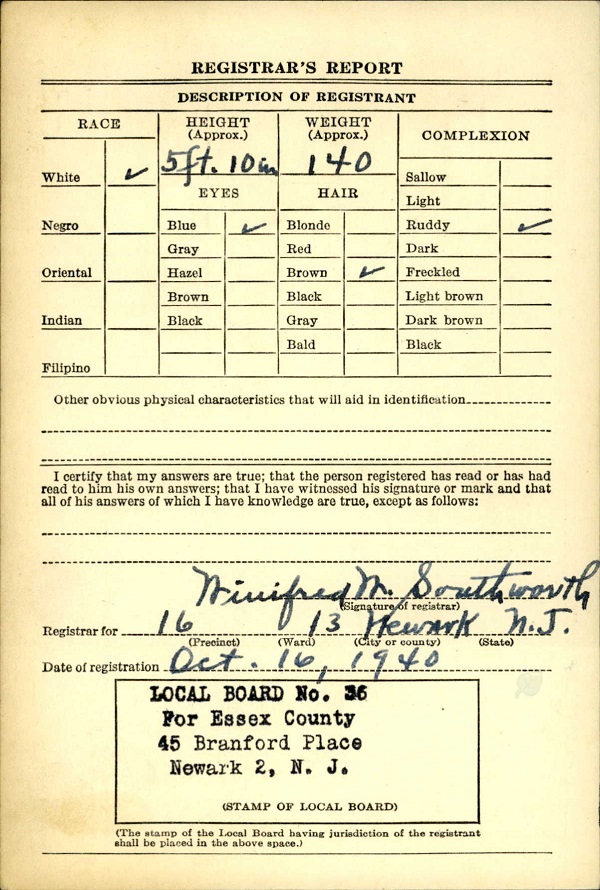 REGISTRAR'S REPORT
DESCRIPTION OF REGISTRANT
RACE
HEIGHT
(Approx.)
WEIGHT
(Approx.)
COMPLEXION
5ft. 10 in
140
White ✓
Sallow
EYES
HAIR
Light
Negro
Blue ✓
Blonde
Ruddy ✓
Gray
Red
Dark
Oriental
Hazel
Brown ✓
Freckled
Brown
Black
Light brown
Indian
Black
Gray
Dark brown
Bald
Black
Filipino
Other obvious physical characteristics that will aid in identification
I certify that my answers are true; that the person registered has read or has had
read to him his own answers; that I have witnessed his signature or mark and that
all of his answers of which I have knowledge are true, except as follows:
Winifred M. Southworth
(Signature of registrar)
Registrar for 16 13 Newark N.J.
(Precinct) (Ward) (City or county) (State)
Date of registration Oct. 16, 1940
LOCAL BOARD No. 36
For Essex County
45 Branford Place
Newark 2, N. J.
(STAMP OF LOCAL BOARD)
(The stamp of the Local Board having jurisdiction of the registrant
shall be placed in the above space.)